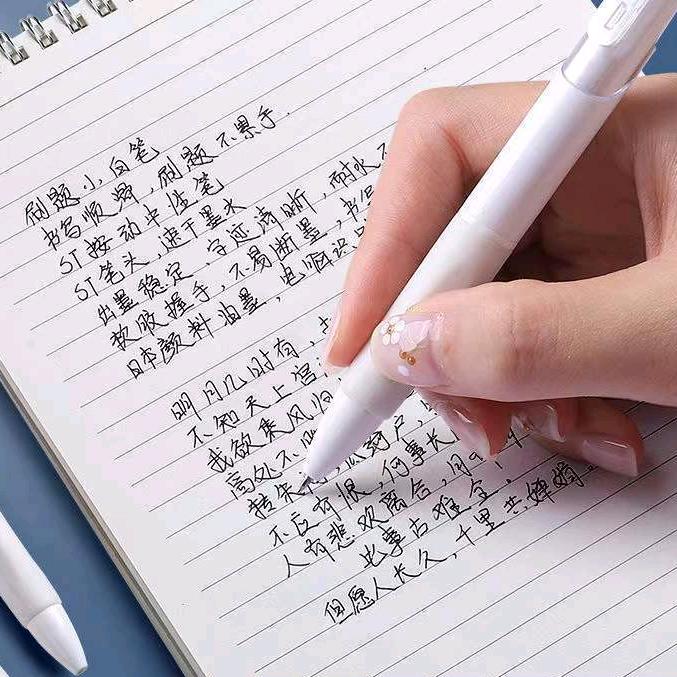 刷题小白笔
书写顺滑,刷题不累手.
ST按动中性笔
ST笔头,速干墨水
出墨稳定、字迹清晰,耐水
软胶握手,不易断墨,书写
日本颜料油墨,
明月几时有,
不知天上宫
我欲乘风归
高处不
转朱 户,
不应有恨,何事长
人有悲欢离合,月
此事古难全.
但愿人长久,千里共婵娟